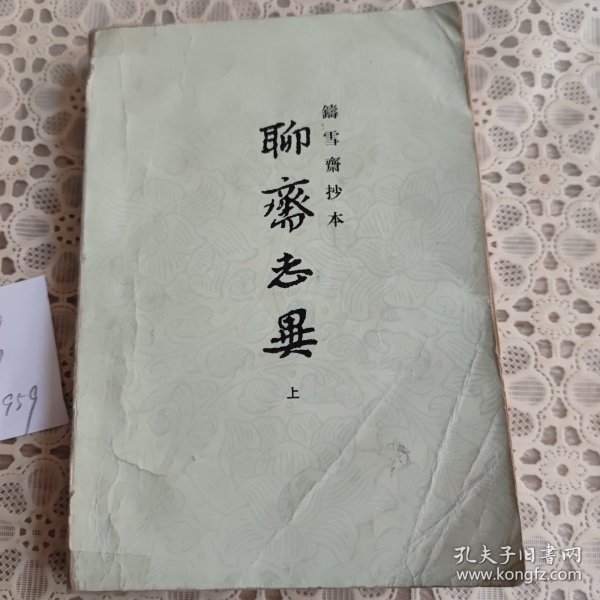 鑄雪齋抄本
聊齋志異
上
959
孔夫子旧书网
www.kongfz.com